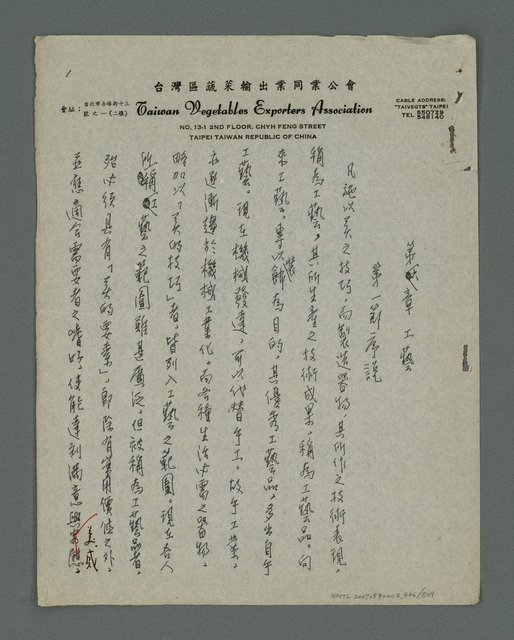 台灣區蔬菜輸出業同業公會
Taiwan Vegetables Exporters Association
會址：台北市赤峰街十三號之一（二樓）
NO. 13-1 2ND FLOOR, CHYH FENG STREET
TAIPEI TAIWAN REPUBLIC OF CHINA
CABLE ADDRESS:
"TAIVEGTS" TAIPEI
TEL.
第 章 工藝
第一節 序說
凡施以美之技巧，而製造器物，其所作之技術表現，
稱為工藝。其所生產之技術成果，稱為工藝品。向
來工藝，專以裝飾為目的，其優秀工藝品，多出自手
工藝。現在機械發達，可以代替手工，故手工業，
亦逐漸趨於機械工業化。而各種生活必需之器物，
略加以「美的技巧」者，皆列入工藝之範圍。現在吾人
所稱工藝之範圍雖甚廣泛，但被稱為工藝品者，
務必須具有「美的要素」，即除有實用價值之外，
並應適合需要者之嗜好，使能達到滿意與美感，
NMTL 20070590002,446/509